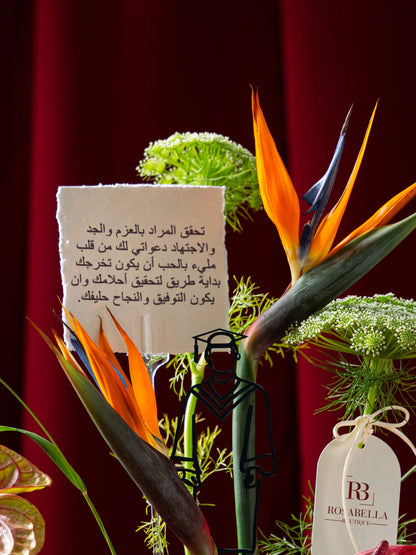 تحقق المراد بالعزم والجد
والاجتهاد دعواتي لك من قلب
مليء بالحب أن يكون تخرجك
بداية طريق لتحقيق أحلامك وان
يكون التوفيق والنجاح حليفك.
RB
ROSABELLA
BOUTIQUE